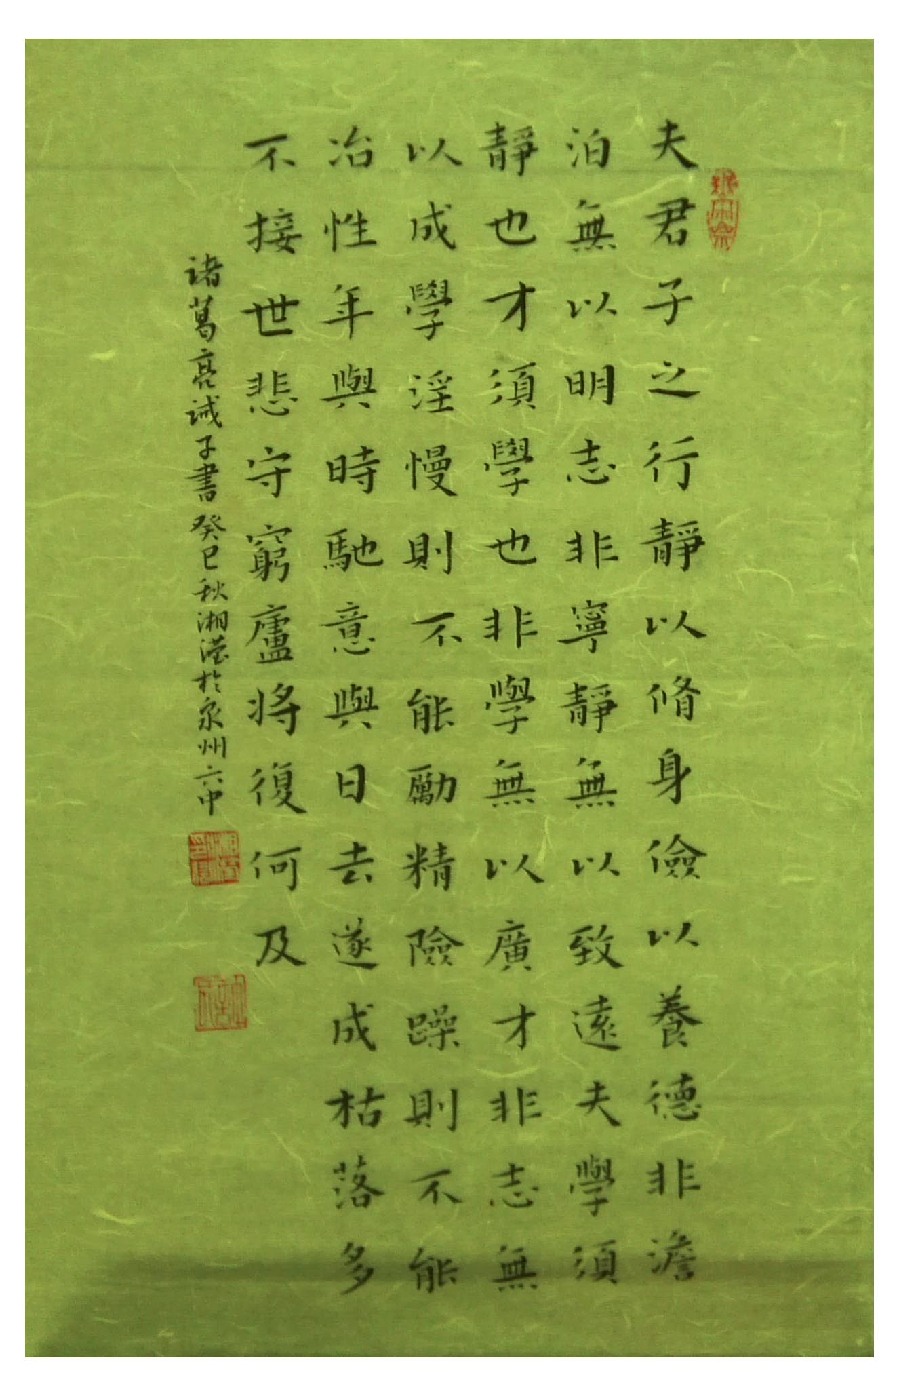 夫君子之行靜以脩身儉以養德非澹
泊無以明志非寧靜無以致遠夫學須
靜也才須學也非學無以廣才非志無
以成學淫慢則不能勵精險躁則不能
冶性年與時馳意與日去遂成枯落多
不接世悲守窮廬將復何及
诸葛亮诫子書癸巳秋湘滢於泉州六中